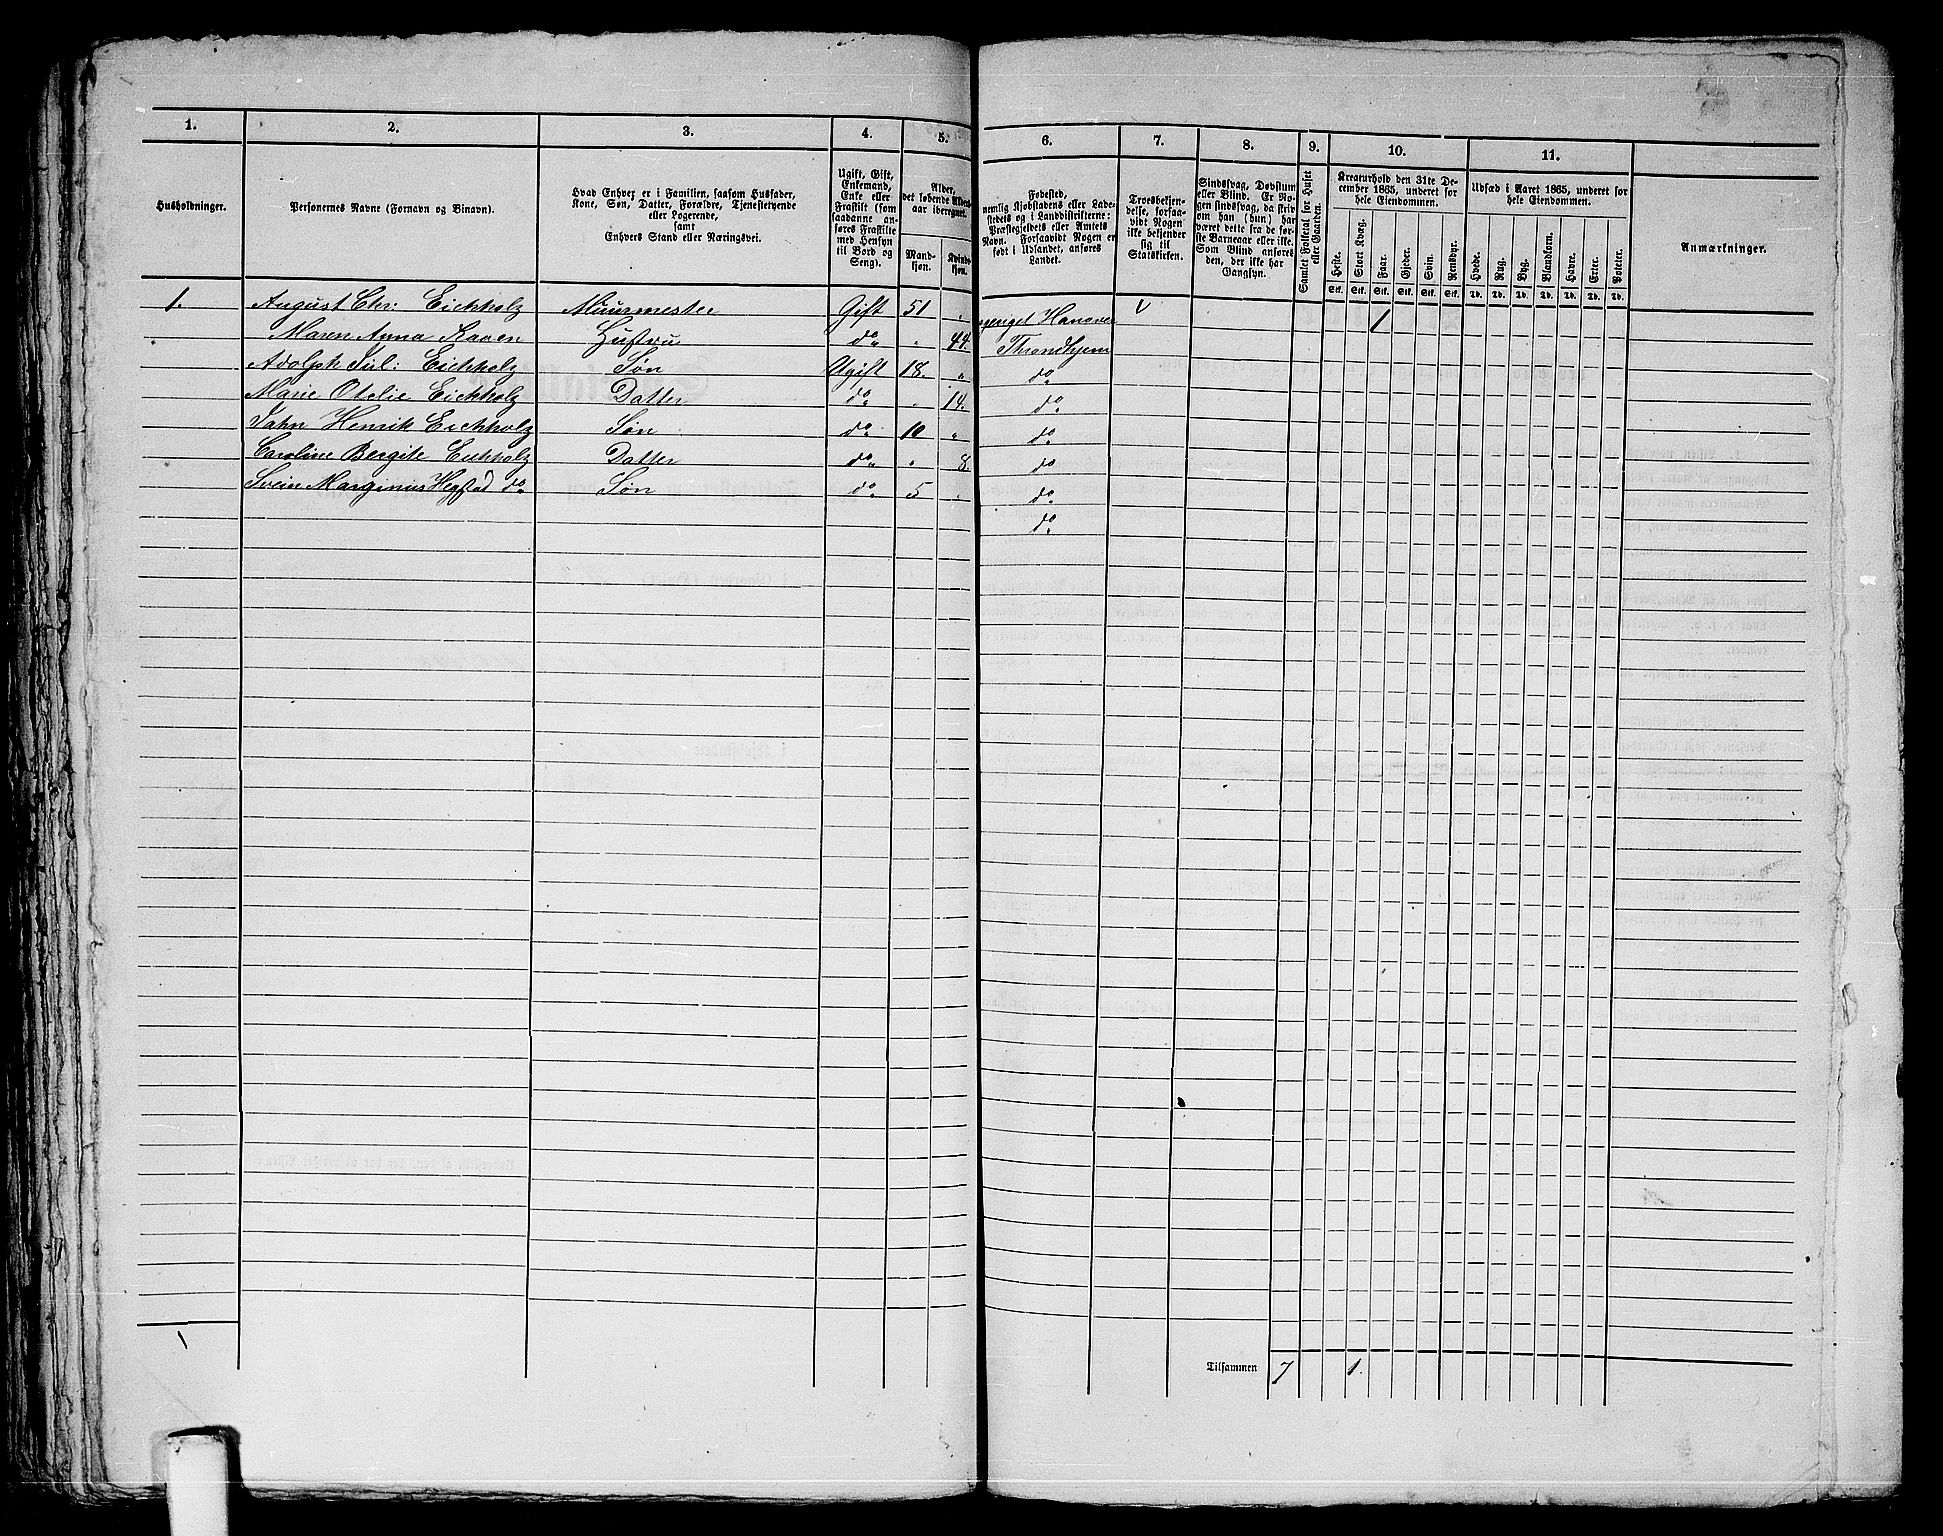 1. 2. 3. 4. 5. 6. 7. 8. 9. 10. 11.
Husholdninger.
Personernes Navne (Fornavn og Binavn).
Hvad Enhver er i Familien, saasom Husfader,
Kone, Søn, Datter, Forældre, Tjenestetyende
eller Logerende,
samt
Enhvers Stand eller Næringsvei.
Ugift, Gift,
Enkemand,
Enke eller
Fraskilt (som
saadanne an-
føres Fraskilte
med Hensyn
til Bord og
Seng).
Alder,
det løbende Alders-
aar iberegnet.
Mand-
kjøn.
Kvind-
kjøn.
Fødested,
nemlig Kjøbstadens eller Lade-
stedets og i Landdistrikterne:
Præstegjeldets eller Amtets
Navn. Forsaavidt Nogen er
født i Udlandet, anføres
Landet.
Troesbekjen-
delse, forsaa-
vidt Nogen
ikke bekjender
sig til
Statskirken.
Sindssvag, Døvstum
eller Blind. Er No-
gen sindssvag, da skriv
om han (hun) har
været dette fra de før-
ste Barneaar eller ikke.
Som Blind anføres
den, der ikke har
Gangsyn.
Samlet Folketal for Huset
eller Gaarden.
Kreaturhold den 31te De-
cember 1865, underet for
hele Eiendommen.
Heste. Stort Kvæg. Faar. Gjeder. Svin. Rensdyr.
Stk. Stk. Stk. Stk. Stk. Stk.
Udsæd i Aaret 1865, underet for
hele Eiendommen.
Hvede. Rug. Byg. Blandkorn. Havre. Erter. Poteter.
Td. Td. Td. Td. Td. Td. Td.
Anmærkninger.
1. August Chr: Eichholz Muurmester Gift 51 " Hanover 1
Maren Anna Hustru do " 44. Throndhjem
Adolph Jul: Eichholz Søn Ugift 18. " do
Marie Otelie Eichholz Datter do " 14. do
John Henrik Eichholz Søn do 10 " do
Caroline Bergite Eichholz Datter do " 8. do
Svein Marginus Hegstad do Søn do 5 " do
do
1
Tilsammen 7 1.